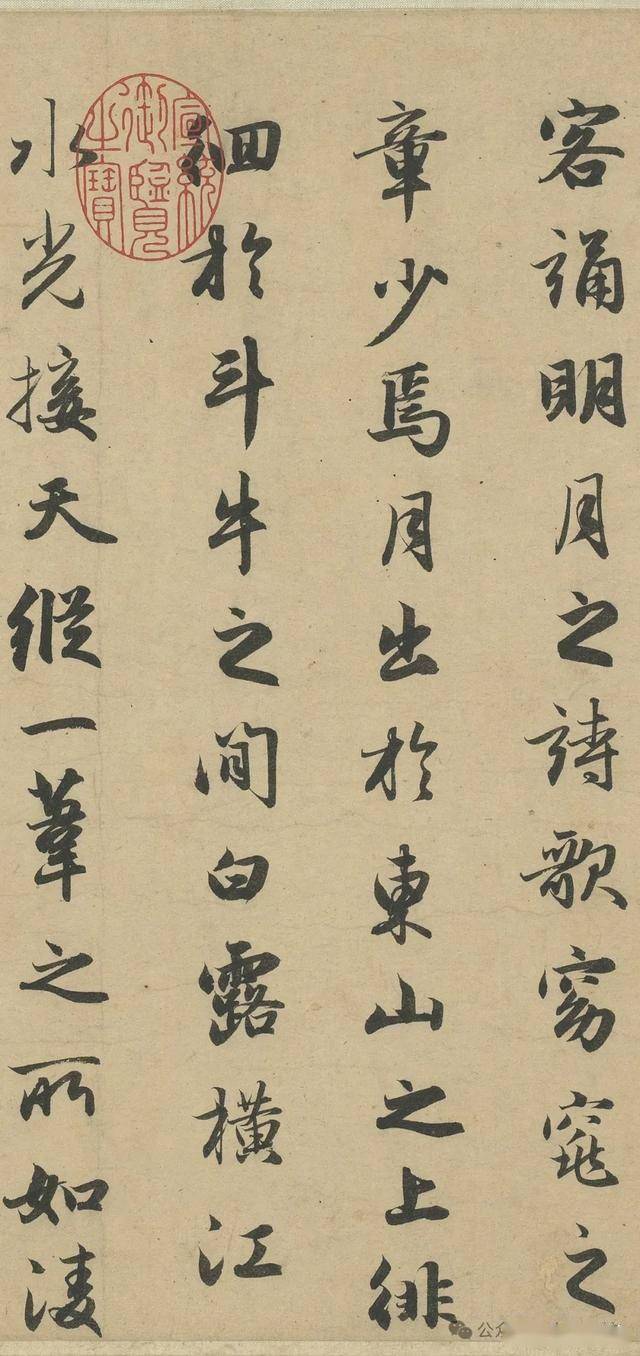 客誦明月之詩歌窈窕之
章少焉月出於東山之上徘
徊於斗牛之間白露橫江
水光接天縱一葦之所如淩
宣統御覽之寶
公众